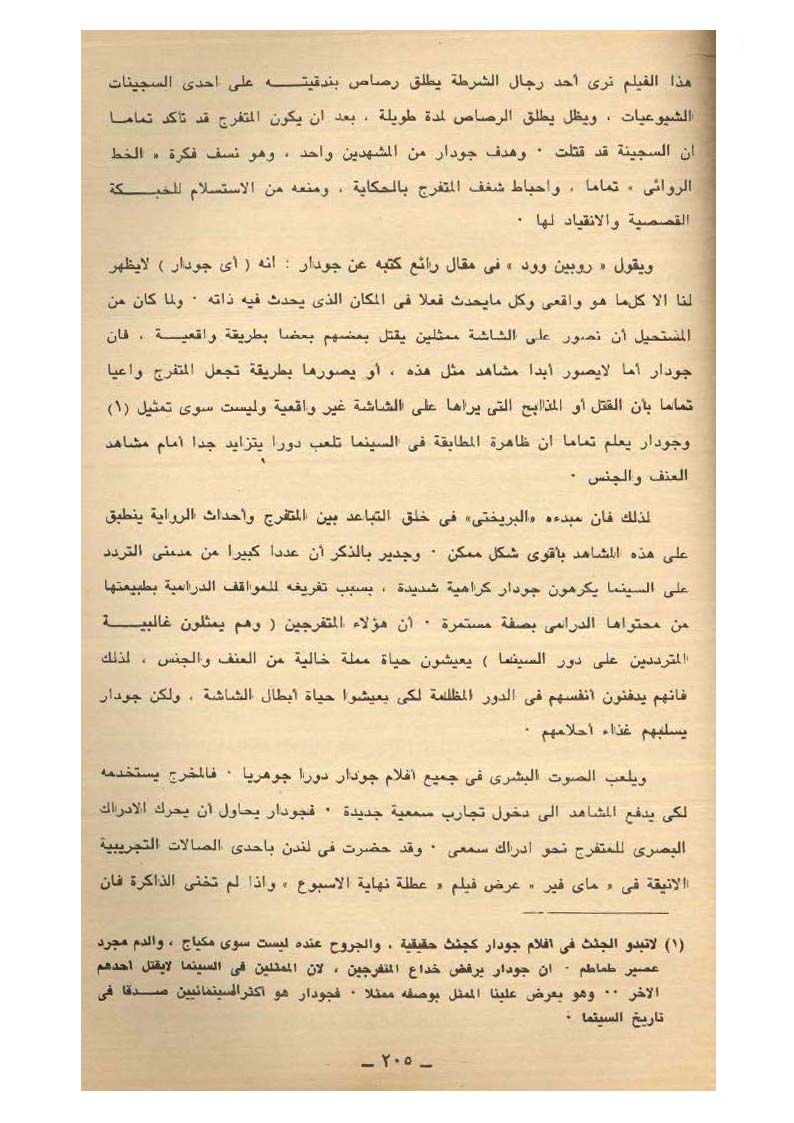 هذا الفيلم نرى أحد رجال الشرطة يطلق رصاص بندقيتـــه على احدى السجينات
الشيوعيات ، ويظل يطلق الرصاص لمدة طويلة ، بعد ان يكون المتفرج قد تأكد تمامـا
ان السجينة قد قتلت ٠ وهدف جودار من المشهدين واحد ، وهو نسف فكرة « الخط
الروائى » تماما ، واحباط شغف المتفرج بالحكاية ، ومنعه من الاستسلام للحبـــكة
القصصية والانقياد لها ٠
ويقول « روبين وود » فى مقال رائع كتبه عن جودار : انه ( أى جودار ) لايظهر
لنا الا كل ما هو واقعى وكل مايحدث فعلا فى المكان الذى يحدث فيه ذاته ٠ ولما كان من
المستحيل أن نصور على الشاشة ممثلين يقتل بعضهم بعضا بطريقة واقعيـــة ، فان
جودار أما لايصور أبدا مشاهد مثل هذه ، أو يصورها بطريقة تجعل المتفرج واعيا
تماما بأن القتل أو المذابح التى يراها على الشاشة غير واقعية وليست سوى تمثيل (١)
وجودار يعلم تماما ان ظاهرة المطابقة فى السينما تلعب دورا يتزايد جدا أمام مشاهد
العنف والجنس ٠
لذلك فان مبدءه «البريختى» فى خلق التباعد بين المتفرج وأحداث الرواية ينطبق
على هذه المشاهد بأقوى شكل ممكن ٠ وجدير بالذكر أن عددا كبيرا من مدمنى التردد
على السينما يكرهون جودار كراهية شديدة ، بسبب تفريغه للمواقف الدرامية بطبيعتها
من محتواها الدرامى بصفة مستمرة ٠ أن هؤلاء المتفرجين ( وهم يمثلون غالبيـــة
المترددين على دور السينما ) يعيشون حياة مملة خالية من العنف والجنس ، لذلك
فانهم يدفنون أنفسهم فى الدور المظلمة لكى يعيشوا حياة أبطال الشاشة ، ولكن جودار
يسلبهم غذاء أحلامهم ٠
ويلعب الصوت البشرى فى جميع افلام جودار دورا جوهريا ٠ فالمخرج يستخدمه
لكى يدفع المشاهد الى دخول تجارب سمعية جديدة ٠ فجودار يحاول أن يحرك الادراك
البصرى للمتفرج نحو ادراك سمعى ٠ وقد حضرت فى لندن باحدى الصالات التجريبية
الانيقة فى « ماى فير » عرض فيلم « عطلة نهاية الاسبوع » واذا لم تخنى الذاكرة فان
(١) لاتبدو الجثث فى افلام جودار كجثث حقيقية ، والجروح عنده ليست سوى مكياج ، والدم مجرد
عصير طماطم ٠ ان جودار يرفض خداع المتفرجين ، لان الممثلين فى السينما لايقتل أحدهم
الاخر ٠٠ وهو يعرض علينا الممثل بوصفه ممثلا ٠ فجودار هو اكثر السينمائيين صـدقا فى
تاريخ السينما ٠
ـ ٢٠٥ ـ